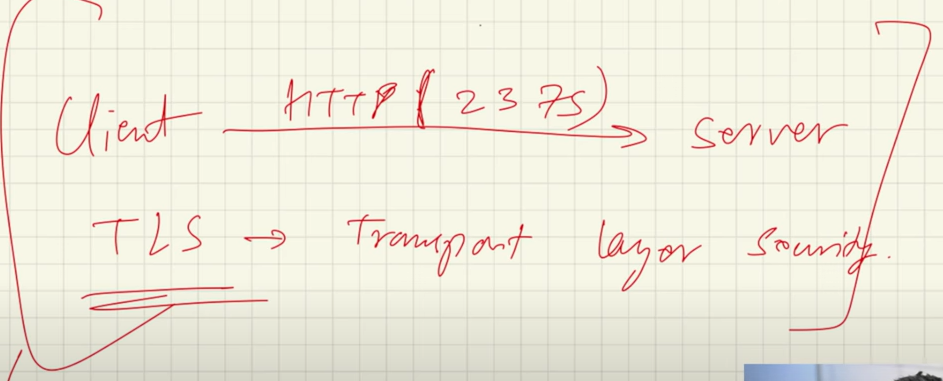 Client HTTP (2375) server
TLS → Transport layer security.